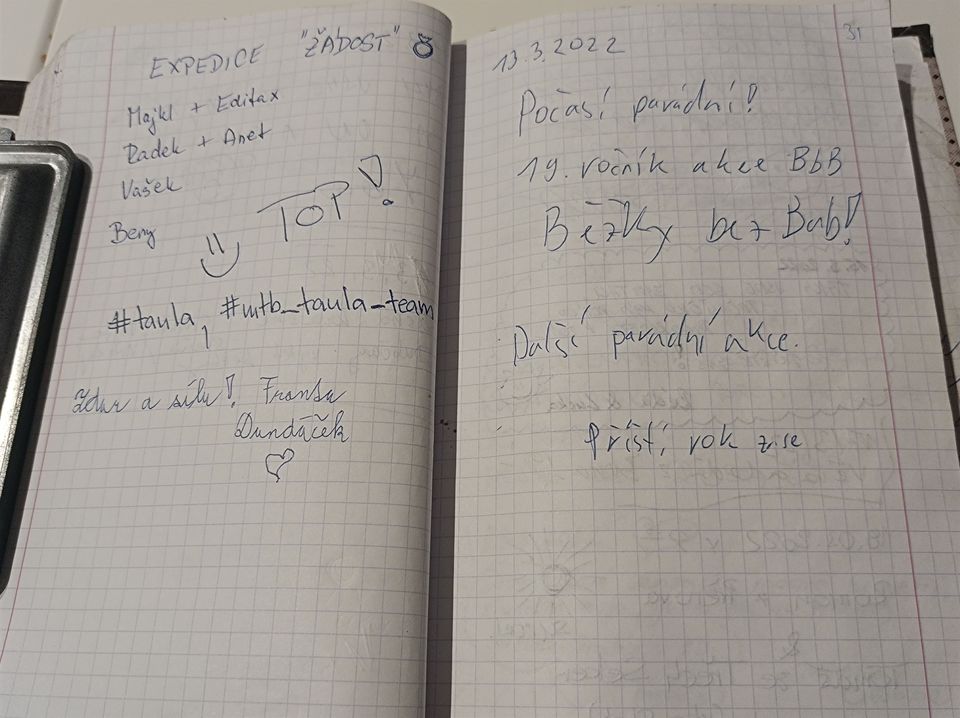 EXPEDICE "ŽÁDOST"
Majkl + Editax
Radek + Anet
Vašek
Beny
TOP!
#taula, #mtb_taula_team
Zdar a sílu! Franta
Dundáček
31
13.3.2022
Počasí parádní!
19. ročník akce BbB
Běžky bez Bab!
Další parádní akce.
Příští rok zse